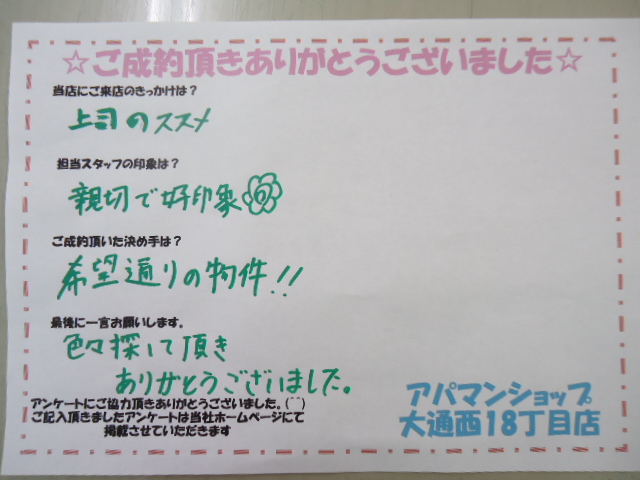 ☆ご成約頂きありがとうございました☆
当店にご来店のきっかけは？
上司のススメ
担当スタッフの印象は？
親切で好印象
ご成約頂いた決め手は？
希望通りの物件!!
最後に一言お願いします。
色々探して頂き
ありがとうございました。
アンケートにご協力頂きありがとうございました。(^^)
ご記入頂きましたアンケートは当社ホームページにて
掲載させていただきます
アパマンショップ
大通西18丁目店